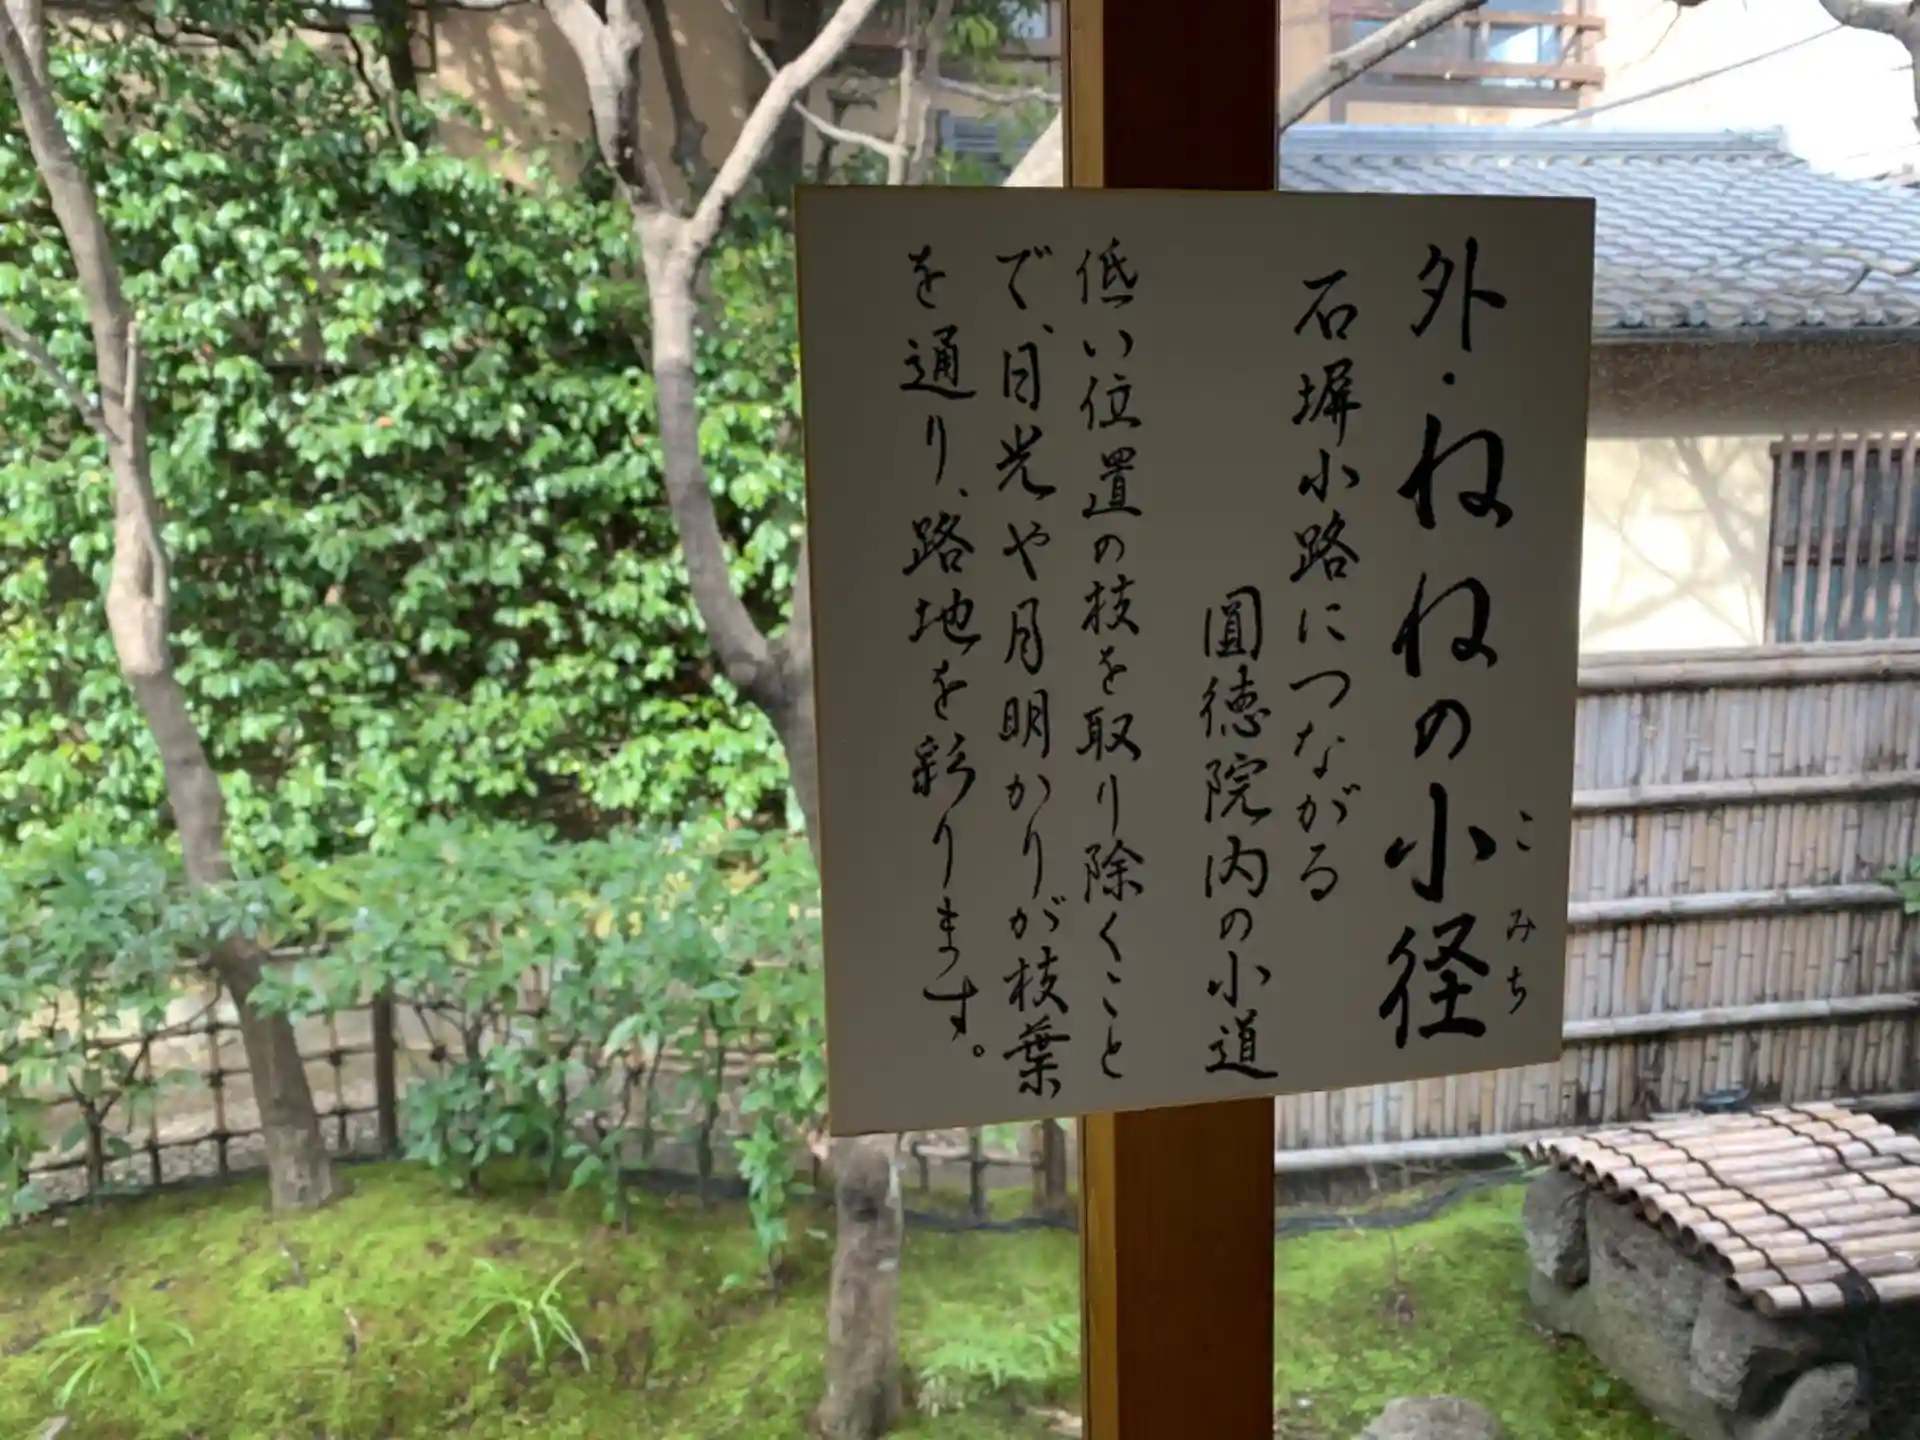 外・ねねの小径
こみち
石塀小路につながる
圓徳院内の小道
低い位置の枝を取り除くこと
で、日光や月明かりが枝葉
を通り、路地を彩ります。